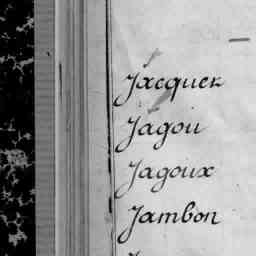 Jacquer
Jagou
Jagoux
Jambon